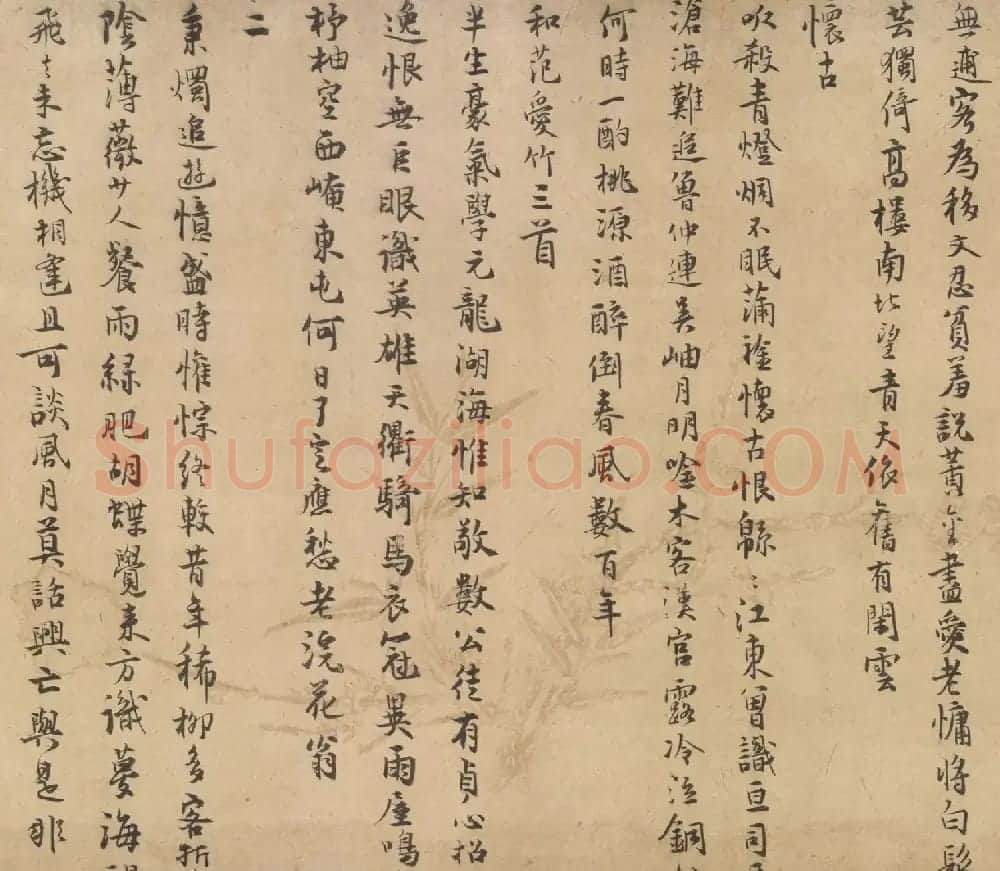 無逋客為移文忍貧羞說黃金盡愛老慵將白髮
芸獨倚高樓南北望青天依舊有閑雲
懷古
吹殺青燈烟不眠蒲龕懷古恨緜〻江東曾識亘司
滄海難追魯仲連吳岫月明吟木客漢宮露冷泣銅
何時一酌桃源酒醉倒春風數百年
和范愛竹三首
半生豪氣學元龍湖海惟知敬數公徒有貞心招
逸恨無巨眼識英雄天衢騎馬衣冠異雨屋鳴
杼柚空西崦東屯何日了定應愁老浣花翁
二
秉燭追遊憶盛時懽悰終較昔年稀柳多客折
陰薄薇少人餐雨綠肥胡蝶覺來方識夢海
飛去未忘機相逢且可談風月莫話興亡與是非
Shufaziliao.COM